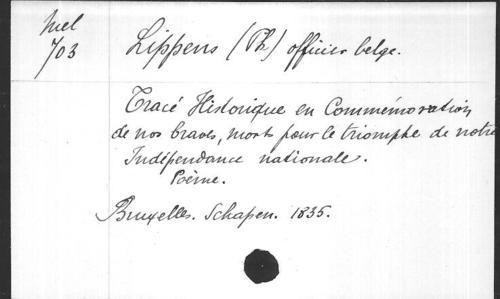 Mel
703
Lippens (Ph) officier belge.
Tracé Historique en Commémoration
de nos braves, morts pour le triomphe de notre
Indépendance nationale.
Poème.
Bruxelles. Schapen. 1835.